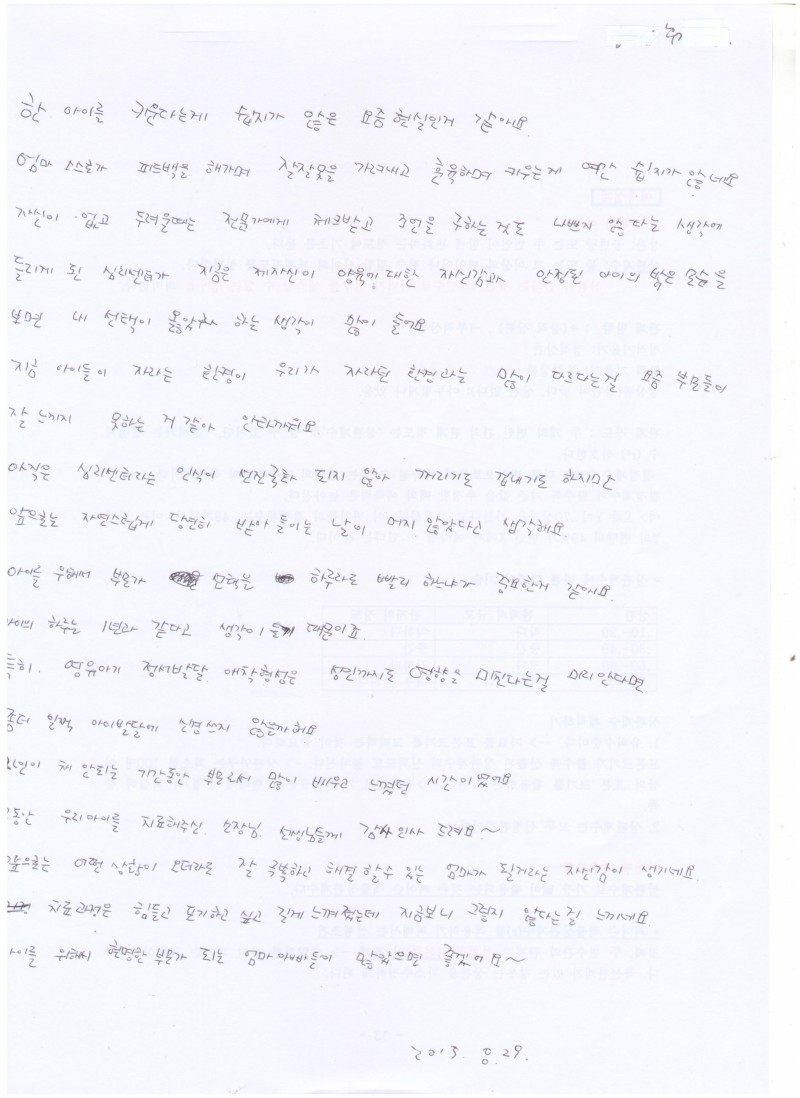 한 아이를 키운다는게 쉽지가 않은 요즘 현실인거 같아요.
엄마 스스로가 피드백을 해가며 잘잘못을 가려내고 훈육하며 키우는게 여간 쉽지가 않네요
자신이 없고 두려울때는 전문가에게 체크받고 조언을 구하는 것도 나쁘지 않다는 생각에
들리게 된 심리센터가 지금은 제자신이 양육에 대한 자신감과 안정된 아이의 밝은 모습을
보면 내 선택이 옳았구나 하는 생각이 많이 들어요
지금 아이들이 자라는 환경이 우리가 자라던 환경과는 많이 다르다는걸 요즘 부모들이
잘 느끼지 못하는 거 같아 안타까워요
아직은 심리센터라는 인식이 선진국화 되지 않아 꺼리기도 겁내기도 하지만
앞으로는 자연스럽게 당연히 받아들이는 날이 머지 않았다시 생각해요
아이를 위해서 부모가 선택을 하루라도 빨리 하느냐가 중요한거 같아요.
아이의 하루는 1년과 같다고 생각이 들기 때문이죠
특히. 영유아기 정서발달. 애착형성은 성인까지도 영향을 미친다는걸 미리안다면
좀더 일찍 아이발달에 신경쓰지 않을까해요
1년이 채 안되는 기간동안 부모로써 많이 배우고 느꼈던 시간이였어요
그동안 우리아이를 치료해주신 소장님. 선생님들께 감사인사 드려요~
앞으로는 어떤 상황이 오더라도 잘 극복하고 해결할수 있는 엄마가 될거라는 자신감이 생기네요.
치료과정은 힘들고 포기하고 싶고 길게 느껴졌는데 지금보니 그렇지 않다는걸 느끼네요
아이를 위해서 현명한 부모가 되는 엄마아빠들이 많았으면 좋겠어요~
2015. 8. 29.